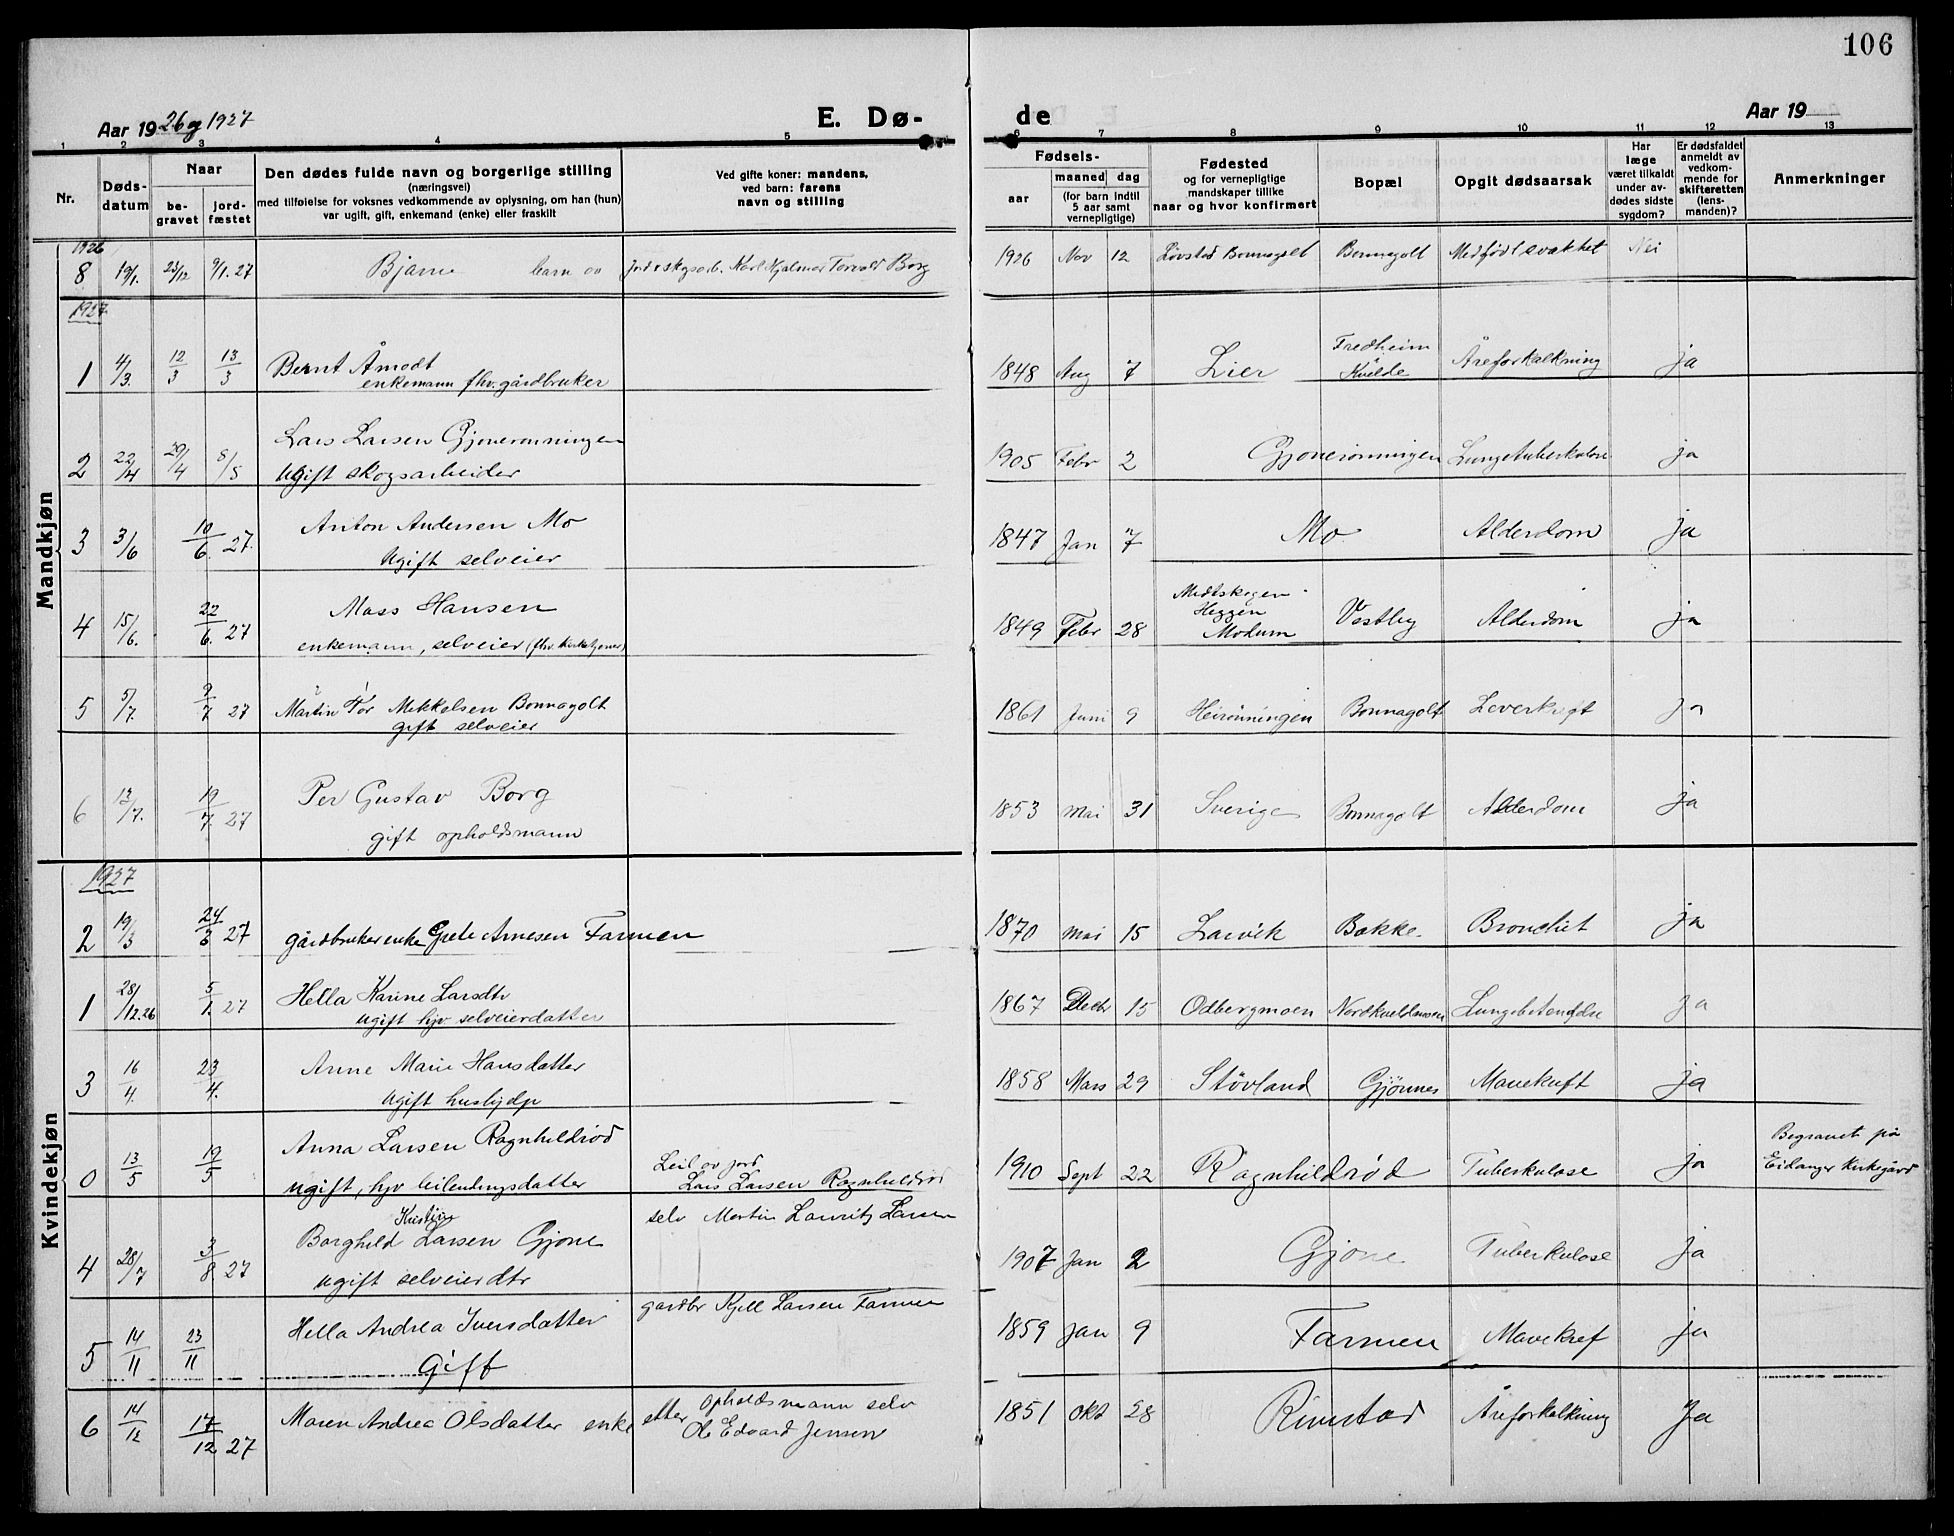 106
Aar 1926 og 1927
E. Dø-
de
Aar 19
1 2 3 4 5 6 7 8 9 10 11 12 13
Nr.
Døds-
datum
Naar
be-
gravet
jord-
fæstet
Den dødes fulde navn og borgerlige stilling
(næringsvei)
med tilføielse for voksnes vedkommende av oplysning, om han (hun)
var ugift, gift, enkemand (enke) eller fraskilt
Ved gifte koner: mandens,
ved barn: farens
navn og stilling
Fødsels-
aar
maaned dag
(for barn indtil
5 aar samt
vernepligtige)
Fødested
og for vernepligtige
mandskaper tillike
naar og hvor konfirmert
Bopæl
Opgit dødsaarsak
Har
læge
været tilkaldt
under av-
dødes sidste
sygdom?
Er dødsfaldet
anmeldt av
vedkom-
mende for
skifteretten
(lens-
manden)?
Anmerkninger
Mandkjøn
1926
8 19/1. 23/12 9/1. 27 Bjarne barn av Jord o skogsarb. Karl Hjalmar Torvald Borg 1926 Nov 12 Løvstad Bonnagolt Bonnagolt Medfødt svakhet Nei
1927
1 4/3. 12/3 13/3 Bernt Åmodt 1848 Aug 7 Lier Fredheim i Kvelde Åreforkalkning ja
enkemann fhv. gårdbruker
2 22/4 29/4 8/5 Lars Larsen Gjonerønningen 1905 Febr 2 Gjonerønningen Lungetuberkulose ja
ugift skogsarbeider
3 3/6 10/6. 27. Anton Andersen Mo 1847 Jan 7 Mo Alderdom ja
ugift selveier
4 15/6. 22/6. 27 Mass Hansen 1849 Febr 28 Midtskogen Heggen Modum Vestby Alderdom ja
enkemann, selveier (fhv. kirketjener)
5 5/7. 9/7 27 Martin Tor Mikkelsen Bonnagolt 1861 Juni 9 Heirønningen Bonnagolt Leverkreft ja
gift selveier
6 12/7. 19/7. 27 Per Gustav Borg 1853 Mai 31 Sverige Bonnagolt Alderdom ja
gift opholdsmann
Kvindekjøn
1927
2 19/3 24/3 27 gårdbrukerenke Grete Arnesen Farmen 1870 Mai 15 Larvik Bakke. Bronchit ja
1 28/12.26 5/1. 27 Hella Karine Larsdtr 1867 Decbr 15 Odbergmoen Nordkveldmoen Lungebetendelse ja
ugift hjv. selveierdatter
3 16/4. 23/4. Anne Marie Hansdatter 1858 Mars 29 Støvland Gjønnes Mavekreft ja
ugift hushjelp
0 13/5 19/5 Anna Larsen Ragnhildrød Leil av jord 1910 Sept 22 Ragnhildrød Tuberkulose ja Begravet på
ugift, hjv leilendingsdatter Lars Larsen Ragnhildrød Eidanger kirkegård
4 28/7 3/8 27 Borghild Kristine Larsen Gjone selv Martin Lauritz Larsen 1907 Jan 2 Gjone Tuberkulose ja
ugift selveierdtr
5 14/11 23/11 Hella Andrea Iversdatter gardbr Kjell Larsen Farmen 1859 Jan 9 Farmen Mavekref ja
Gift
6 14/12 17/12 27 Maren Andrea Olsdatter enke etter opholdsmann selv 1851 Okt 28 Rimstad Åreforkalkning Ja
Ole Edvard Jensen